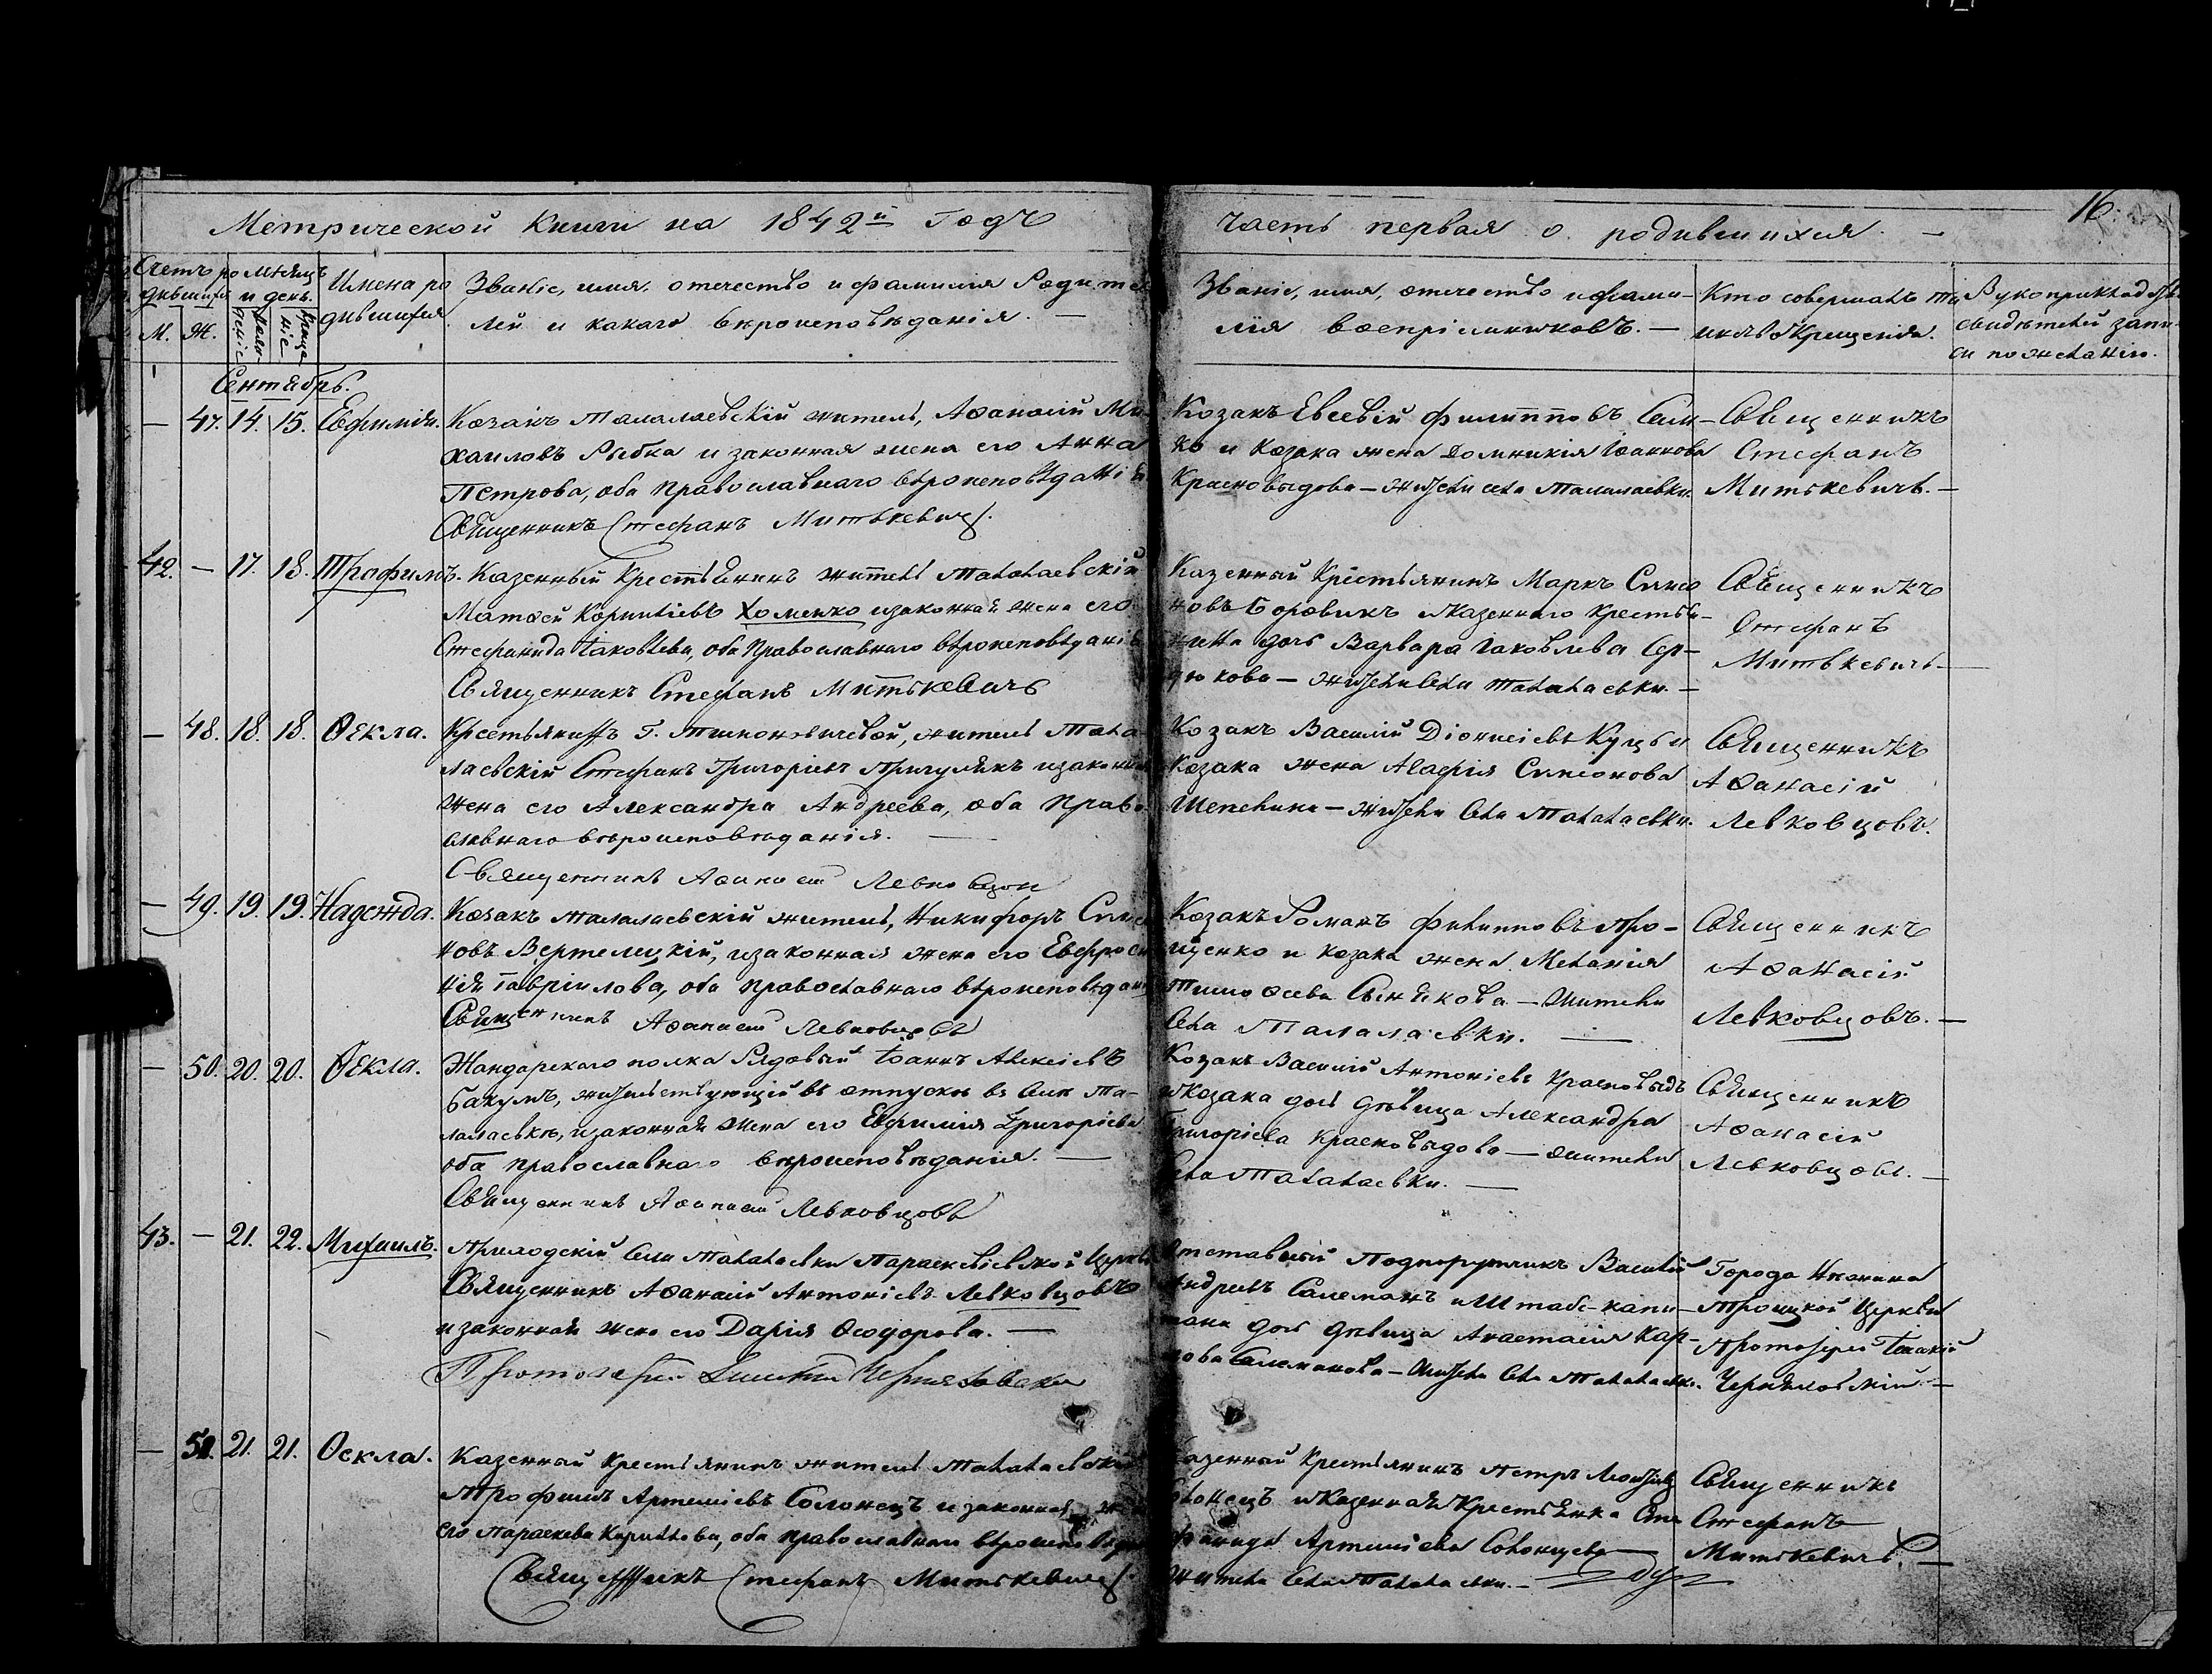 16.
Метрической Книги на 1842й Годъ
часть первая о родившихся. —
Счетъ ро
дившихся
М. Ж.
Мѣсяцъ
и день.
Креще
ніе
Имена ро
дившихся.
Званіе, имя, отечество и фамилія Родите
лей и какаго вѣроисповѣданія. —
Званіе, имя, отечество и фами-
лія воспріемниковъ. —
Кто совершалъ та
инство Крещенія.
Рукоприкладство
свидѣтелей запи-
си по желанію.
Сентябрь.
— 47. 14. 15. Евфимія.
Козакъ Талалаевскій житель, Аѳанасій Ми
хаиловъ Рыбка и законная жена его Анна
Петрова, оба Православнаго вѣроисповѣданія
Священникъ Стефанъ Митькевичъ.
Козакъ Евсевій Филипповъ Сам-
ко и Козака жена Домникія Іоаннова
Красновыдова — жители села Талалаевки.
Священникъ
Стефанъ
Митькевичъ. —
42. — 17. 18. Трофимъ.
Казенный Крестьянинъ житель Талалаевскій
Матѳей Корниліевъ Хоменко и законная жена его
Стефанида Іаковлева, оба Православнаго вѣроисповѣданія
Священникъ Стефанъ Митькевичъ
Казенный Крестьянинъ Маркъ Симео
новъ Боровикъ и Казеннаго Крестья-
нина дочь Варвара Іаковлева Сер-
дюкова — жители села Талалаевки. —
Священникъ
Стефанъ
Митькевичъ —
— 48. 18. 18. Ѳекла.
Крестьянинъ Г. житель Тала
лаевскій Стефанъ Григоріевъ и законная
жена его Александра Андреева, оба Право
славнаго вѣроисповѣданія. —
Священникъ Аѳанасій Левковцовъ
Козакъ Василій Діонисіевъ Куцъ и
Козака жена Агафія Симеонова
— жители села Талалаевки.
Священникъ
Аѳанасій
Левковцовъ.
— 49. 19. 19. Надежда.
Козакъ Талалаевскій житель, Никифоръ Симео
новъ Вертелецкій, и законная жена его Евфроси
нія Гавріилова, оба православнаго вѣроисповѣданія
Священникъ Аѳанасій Левковцовъ
Козакъ Романъ Филипповъ Про-
щенко и козака жена Меланія
Тимоѳеева Синякова — жители
села Талалаевки. —
Священникъ
Аѳанасій
Левковцовъ. —
— 50. 20. 20. Ѳекла.
Жандарскаго полка Рядовый Іоаннъ Алексіевъ
Бакумъ, жительствующій въ отпускѣ въ селѣ Та-
лалаевкѣ, и законная жена его Евфимія Григоріева
оба православнаго вѣроисповѣданія. —
Священникъ Аѳанасій Левковцовъ
Козакъ Василій Антоніевъ Красновыдъ
и Козака дочь дѣвица Александра
Григоріева Красновыдова — жители
села Талалаевки. —
Священникъ
Аѳанасій
Левковцовъ. —
43. — 21. 22. Михаилъ.
Приходскій села Талалаевки Параскевіевской Церкви
Священникъ Аѳанасій Антоніевъ Левковцовъ
и законная жена его Дарія Ѳеодорова. —
Протоіерей
Отставный Подпоручикъ Василій
Андреевъ Салеманъ и Штабс-капи-
тана дочь дѣвица Анастасія Кар-
пова Салеманова — жители села Талалаевки.
Города Нѣжина
Троицкой Церкви
Протоіерей
—
— 51. 21. 21. Ѳекла.
Казенный Крестьянинъ житель Талалаевскій
Трофимъ Артеміевъ Солонецъ и законная жена
его Параскева Кириллова, оба православнаго вѣроисповѣданія
Священникъ Стефанъ Митькевичъ
Казенный Крестьянинъ Петръ
Солонецъ и Казенная Крестьянка Сте
фанида Артеміева Солонцева —
жители села Талалаевки. —
Священникъ
Стефанъ
Митькевичъ. —